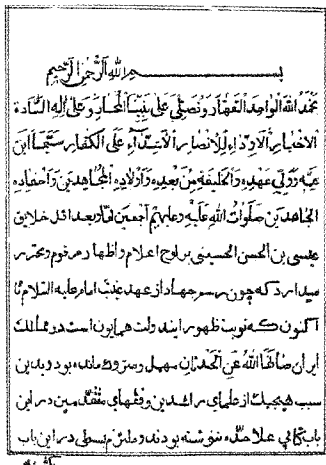 بسم الله الرحمن الرحیم
نحمد الله الواحد القهار و نصلی علی نبینا المختار و علی اله السادة
الاخیار الاوداء للانصار الاشداء علی الکفار سیما ابن
عمه و ولی عهده و الخلیفة من بعده و اولاده المجاهدین و احفاده
الجاهدین صلوات الله علیه و علیهم اجمعین اما بعد اذل خلایق
عیسی بن الحسن الحسینی بر لوح اعلام و اظهار مرقوم و محرر
میدارد که چون رسم جهاد از عهد غیبت امام علیه السلام تا
اکنون که نوبت ظهور ایندولت همایون است در ممالک
ایران صانها الله عن الحدثان مهمل و متروک مانده بود و بدین
سبب هیچیک از علمای راشدین و فقهای متقدمین در این
باب کتابی علاحده ننوشته بودند و ملتزم بسطی در این باب